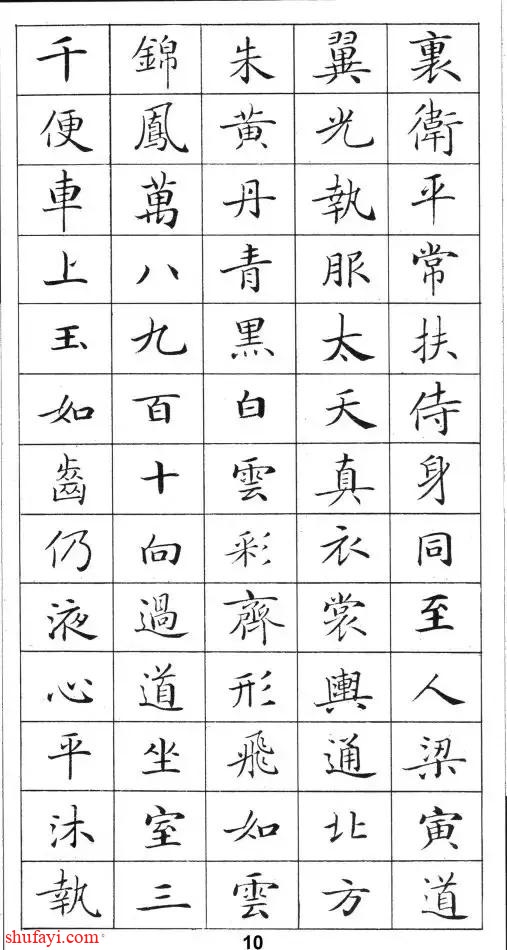 裏衛平常扶侍身同至人梁寅道
翼光執服太天真衣裳輿通北方
朱黃丹青黑白雲彩齊形飛如雲
錦鳳萬八九百十向過道坐室三
千便車上玉如齒仍液心平沐執
shufayi.com
10